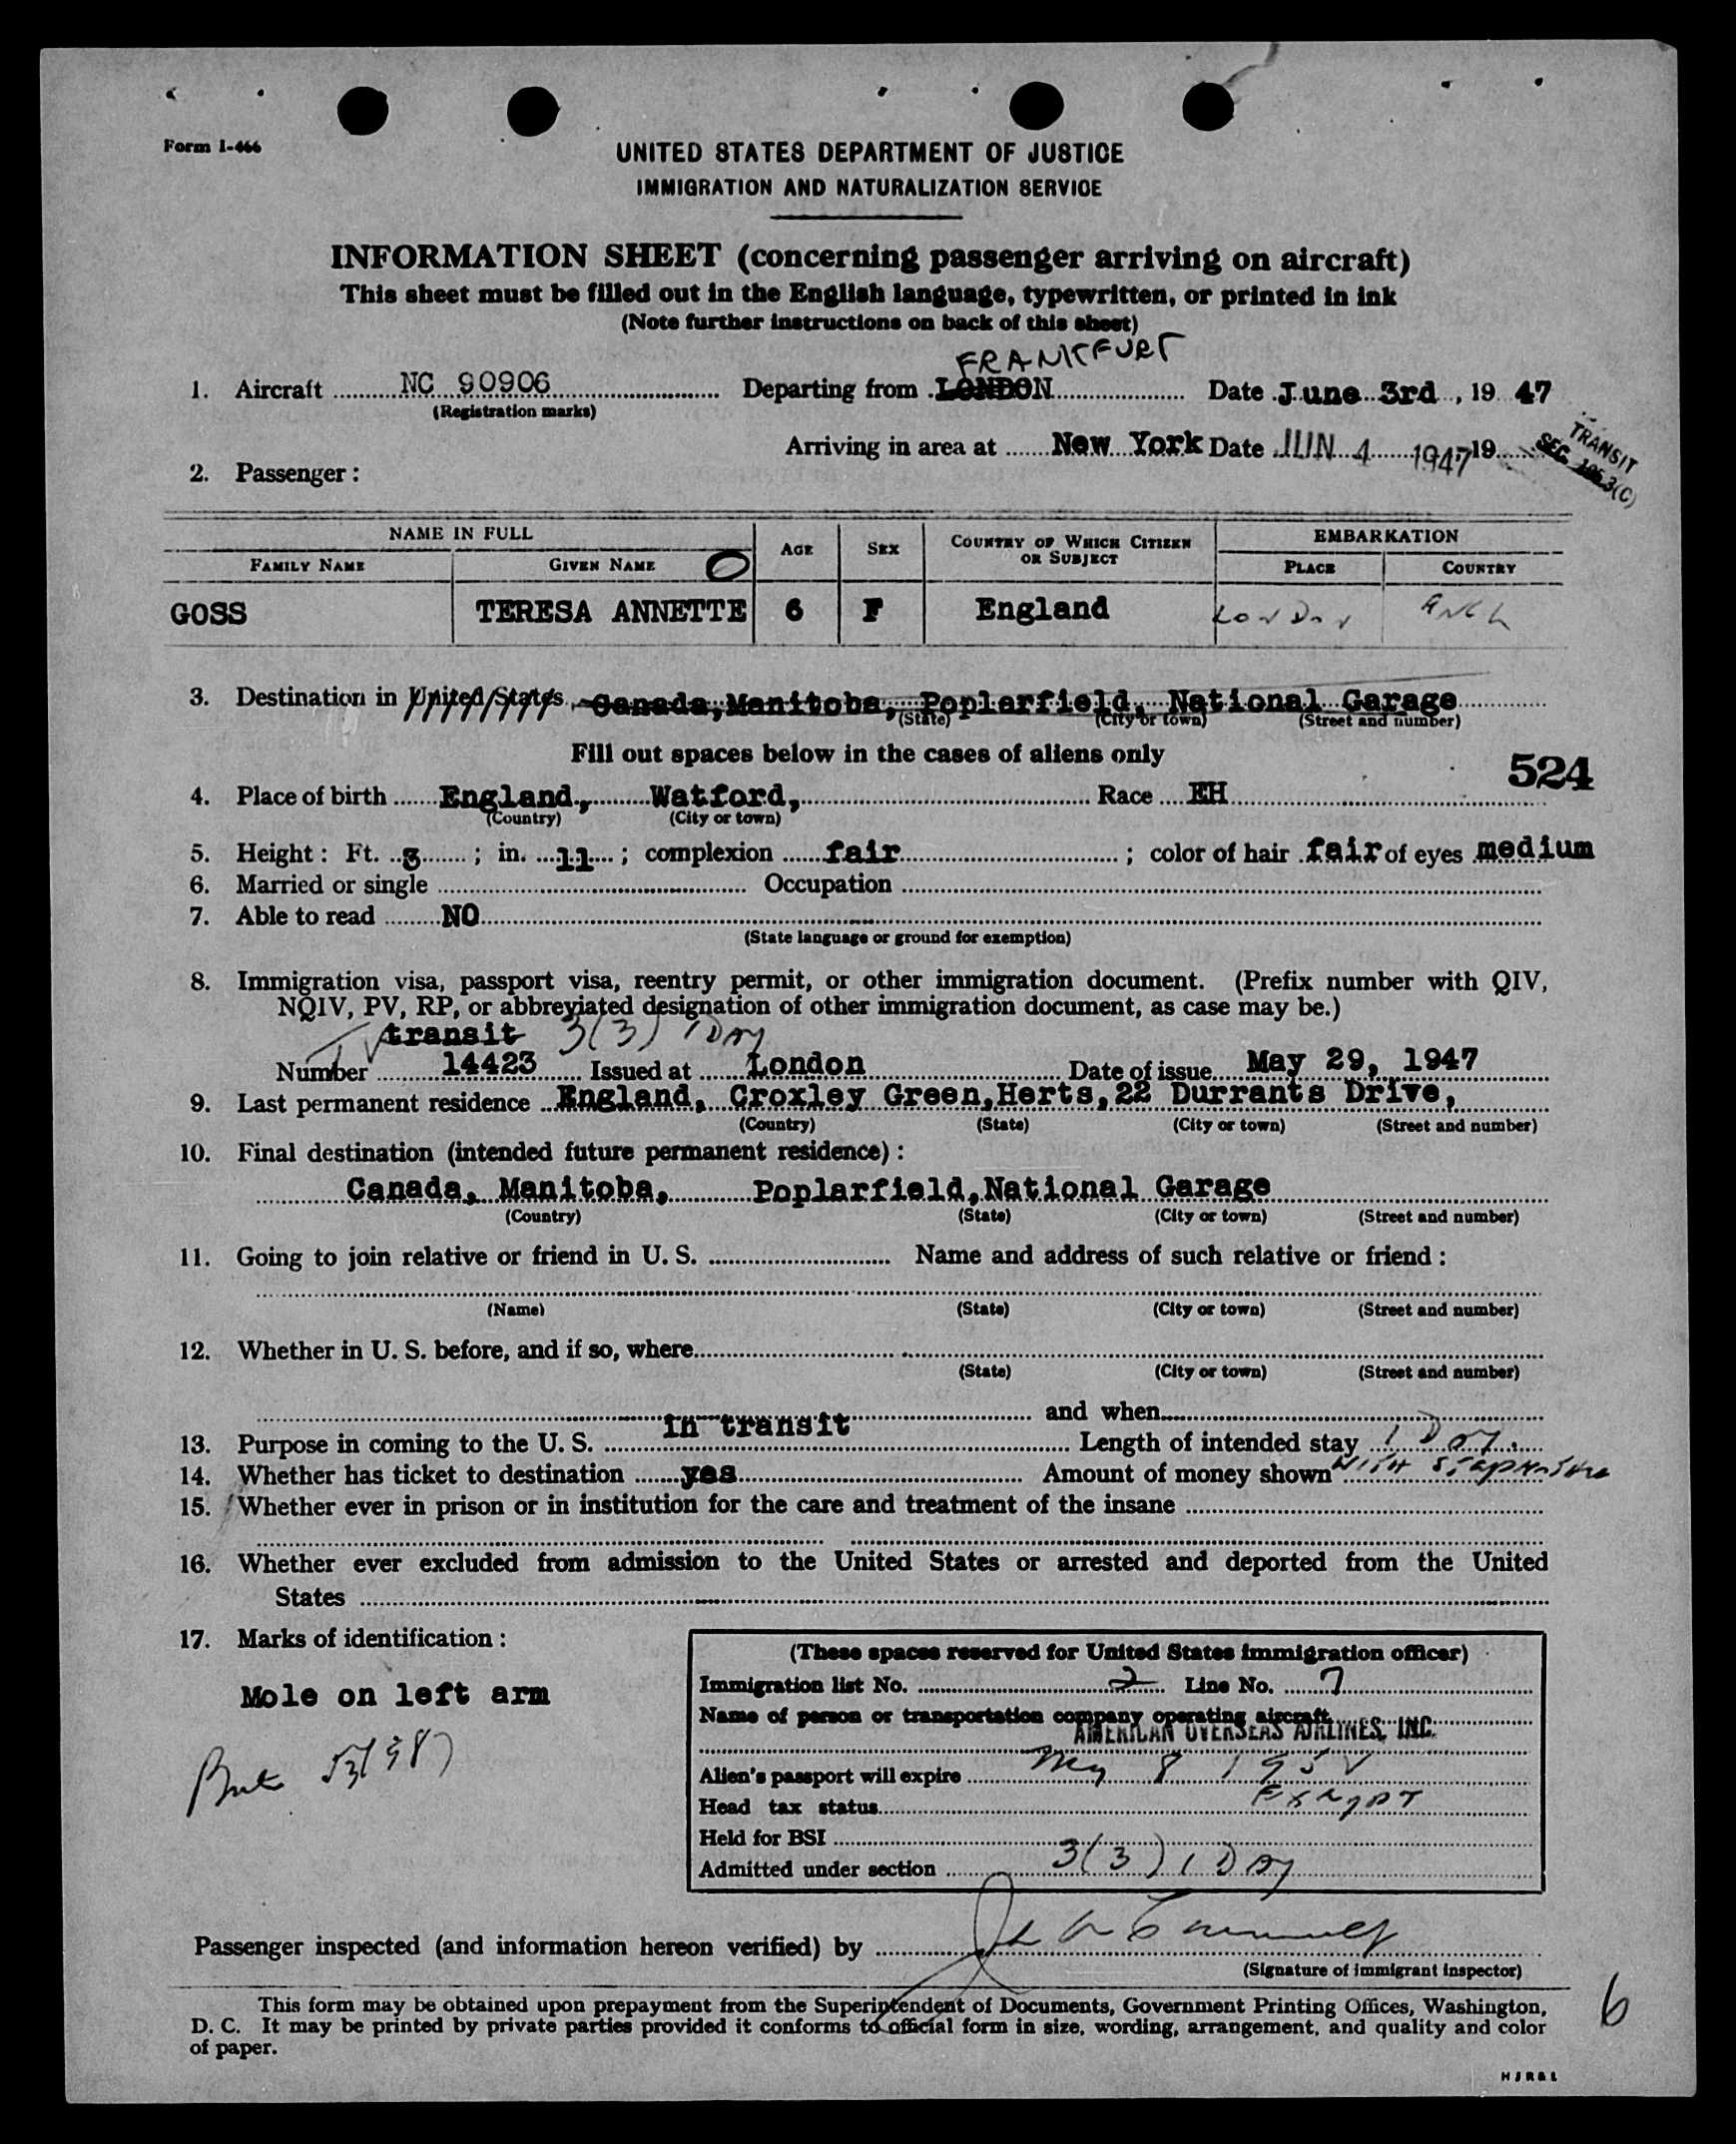 Form I-466
UNITED STATES DEPARTMENT OF JUSTICE
IMMIGRATION AND NATURALIZATION SERVICE
INFORMATION SHEET (concerning passenger arriving on aircraft)
This sheet must be filled out in the English language, typewritten, or printed in ink
(Note further instructions on back of this sheet)
FRANKFURT
1. Aircraft NC 90906 Departing from LONDON Date June 3rd, 19 47
(Registration marks)
Arriving in area at New York Date JUN 4 1947 19
TRANSIT
SEC. 105.3(C)
2. Passenger:
NAME IN FULL AGE SEX COUNTRY OF WHICH CITIZEN OR SUBJECT EMBARKATION
FAMILY NAME GIVEN NAME PLACE COUNTRY
GOSS TERESA ANNETTE 6 F England LONDON ENGL
3. Destination in United States Canada, Manitoba, Poplarfield, National Garage
(State) (City or town) (Street and number)
Fill out spaces below in the cases of aliens only
524
4. Place of birth England, Watford, Race EH
(Country) (City or town)
5. Height: Ft. 3; in. 11; complexion fair; color of hair fair of eyes medium
6. Married or single Occupation
7. Able to read NO
(State language or ground for exemption)
8. Immigration visa, passport visa, reentry permit, or other immigration document. (Prefix number with QIV,
NQIV, PV, RP, or abbreviated designation of other immigration document, as case may be.)
TV transit 3(3) 1 DAY
Number 14423 Issued at London Date of issue May 29, 1947
9. Last permanent residence England, Croxley Green, Herts, 22 Durrants Drive,
(Country) (State) (City or town) (Street and number)
10. Final destination (intended future permanent residence):
Canada, Manitoba, Poplarfield, National Garage
(Country) (State) (City or town) (Street and number)
11. Going to join relative or friend in U. S. Name and address of such relative or friend:
(Name) (State) (City or town) (Street and number)
12. Whether in U. S. before, and if so, where
(State) (City or town) (Street and number)
and when
13. Purpose in coming to the U. S. in transit Length of intended stay 1 Day.
14. Whether has ticket to destination yes Amount of money shown WITH
15. Whether ever in prison or in institution for the care and treatment of the insane
16. Whether ever excluded from admission to the United States or arrested and deported from the United
States
17. Marks of identification:
Mole on left arm
(These spaces reserved for United States immigration officer)
Immigration list No. 2 Line No. 7
Name of person or transportation company operating aircraft
AMERICAN OVERSEAS AIRLINES, INC.
Alien's passport will expire May 8 195
Head tax status EXEMPT
Held for BSI
Admitted under section 3(3) 1 DAY
Passenger inspected (and information hereon verified) by
(Signature of immigrant inspector)
This form may be obtained upon prepayment from the Superintendent of Documents, Government Printing Offices, Washington,
D. C. It may be printed by private parties provided it conforms to official form in size, wording, arrangement, and quality and color
of paper.
6
H J R & L